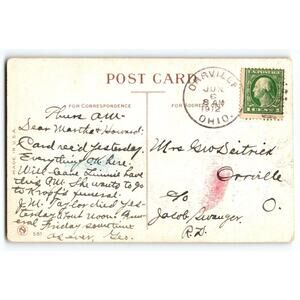 POST CARD
FOR CORRESPONDENCE
FOR ADDRESS
ORRVILLE
JUN
6
8 AM
1912
OHIO.
U.S. POSTAGE
Thurs AM
Dear Martha & Howard:
Card rec'd yesterday.
Everything ok here.
Will leave Linnie have
this PM. She wants to go
to Kropfs funeral
J.M. Taylor died Yes-
terday about noon. Fun-
eral Friday sometime
as ever, Geo.
Mrs Geo Deitrick
Orrville
O.
c/o
Jacob Swanger
R.D.
MADE IN U.S.A.
N